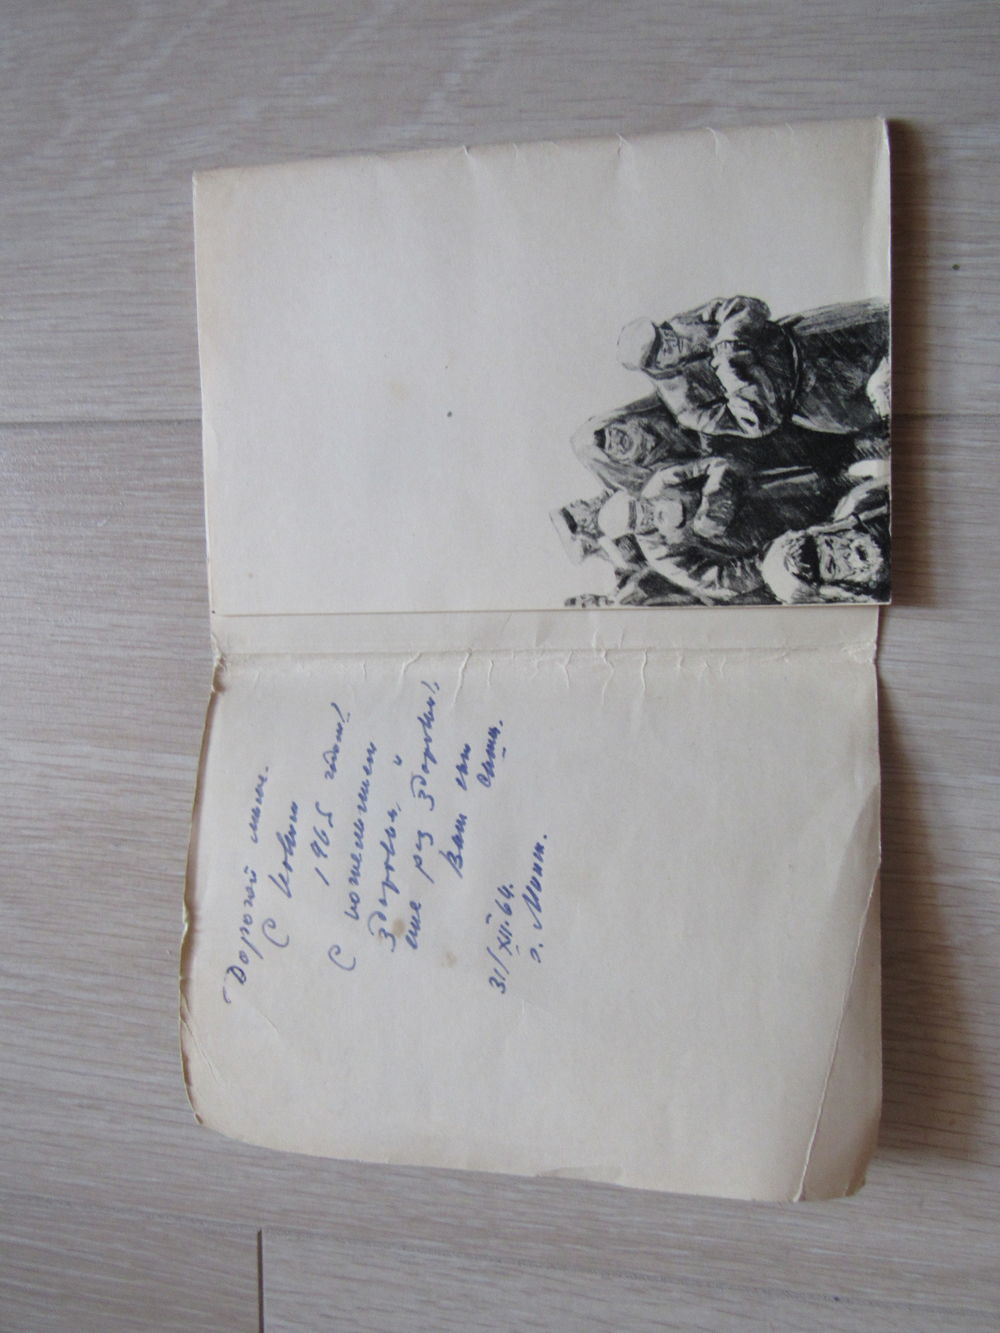 Дорогой маме.
С Новым
1965 годом!
С пожеланием
здоровья, и
еще раз здоровья!
Ваш сын
Саша.
31/XII-64.
г. Минск.